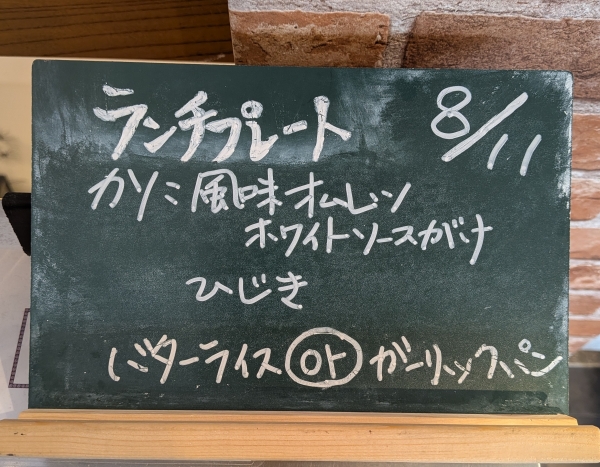 ランチプレート 8/11
カソニ風味オムレツ
ホワイトソースがけ
ひじき
バターライス or ガーリックパン